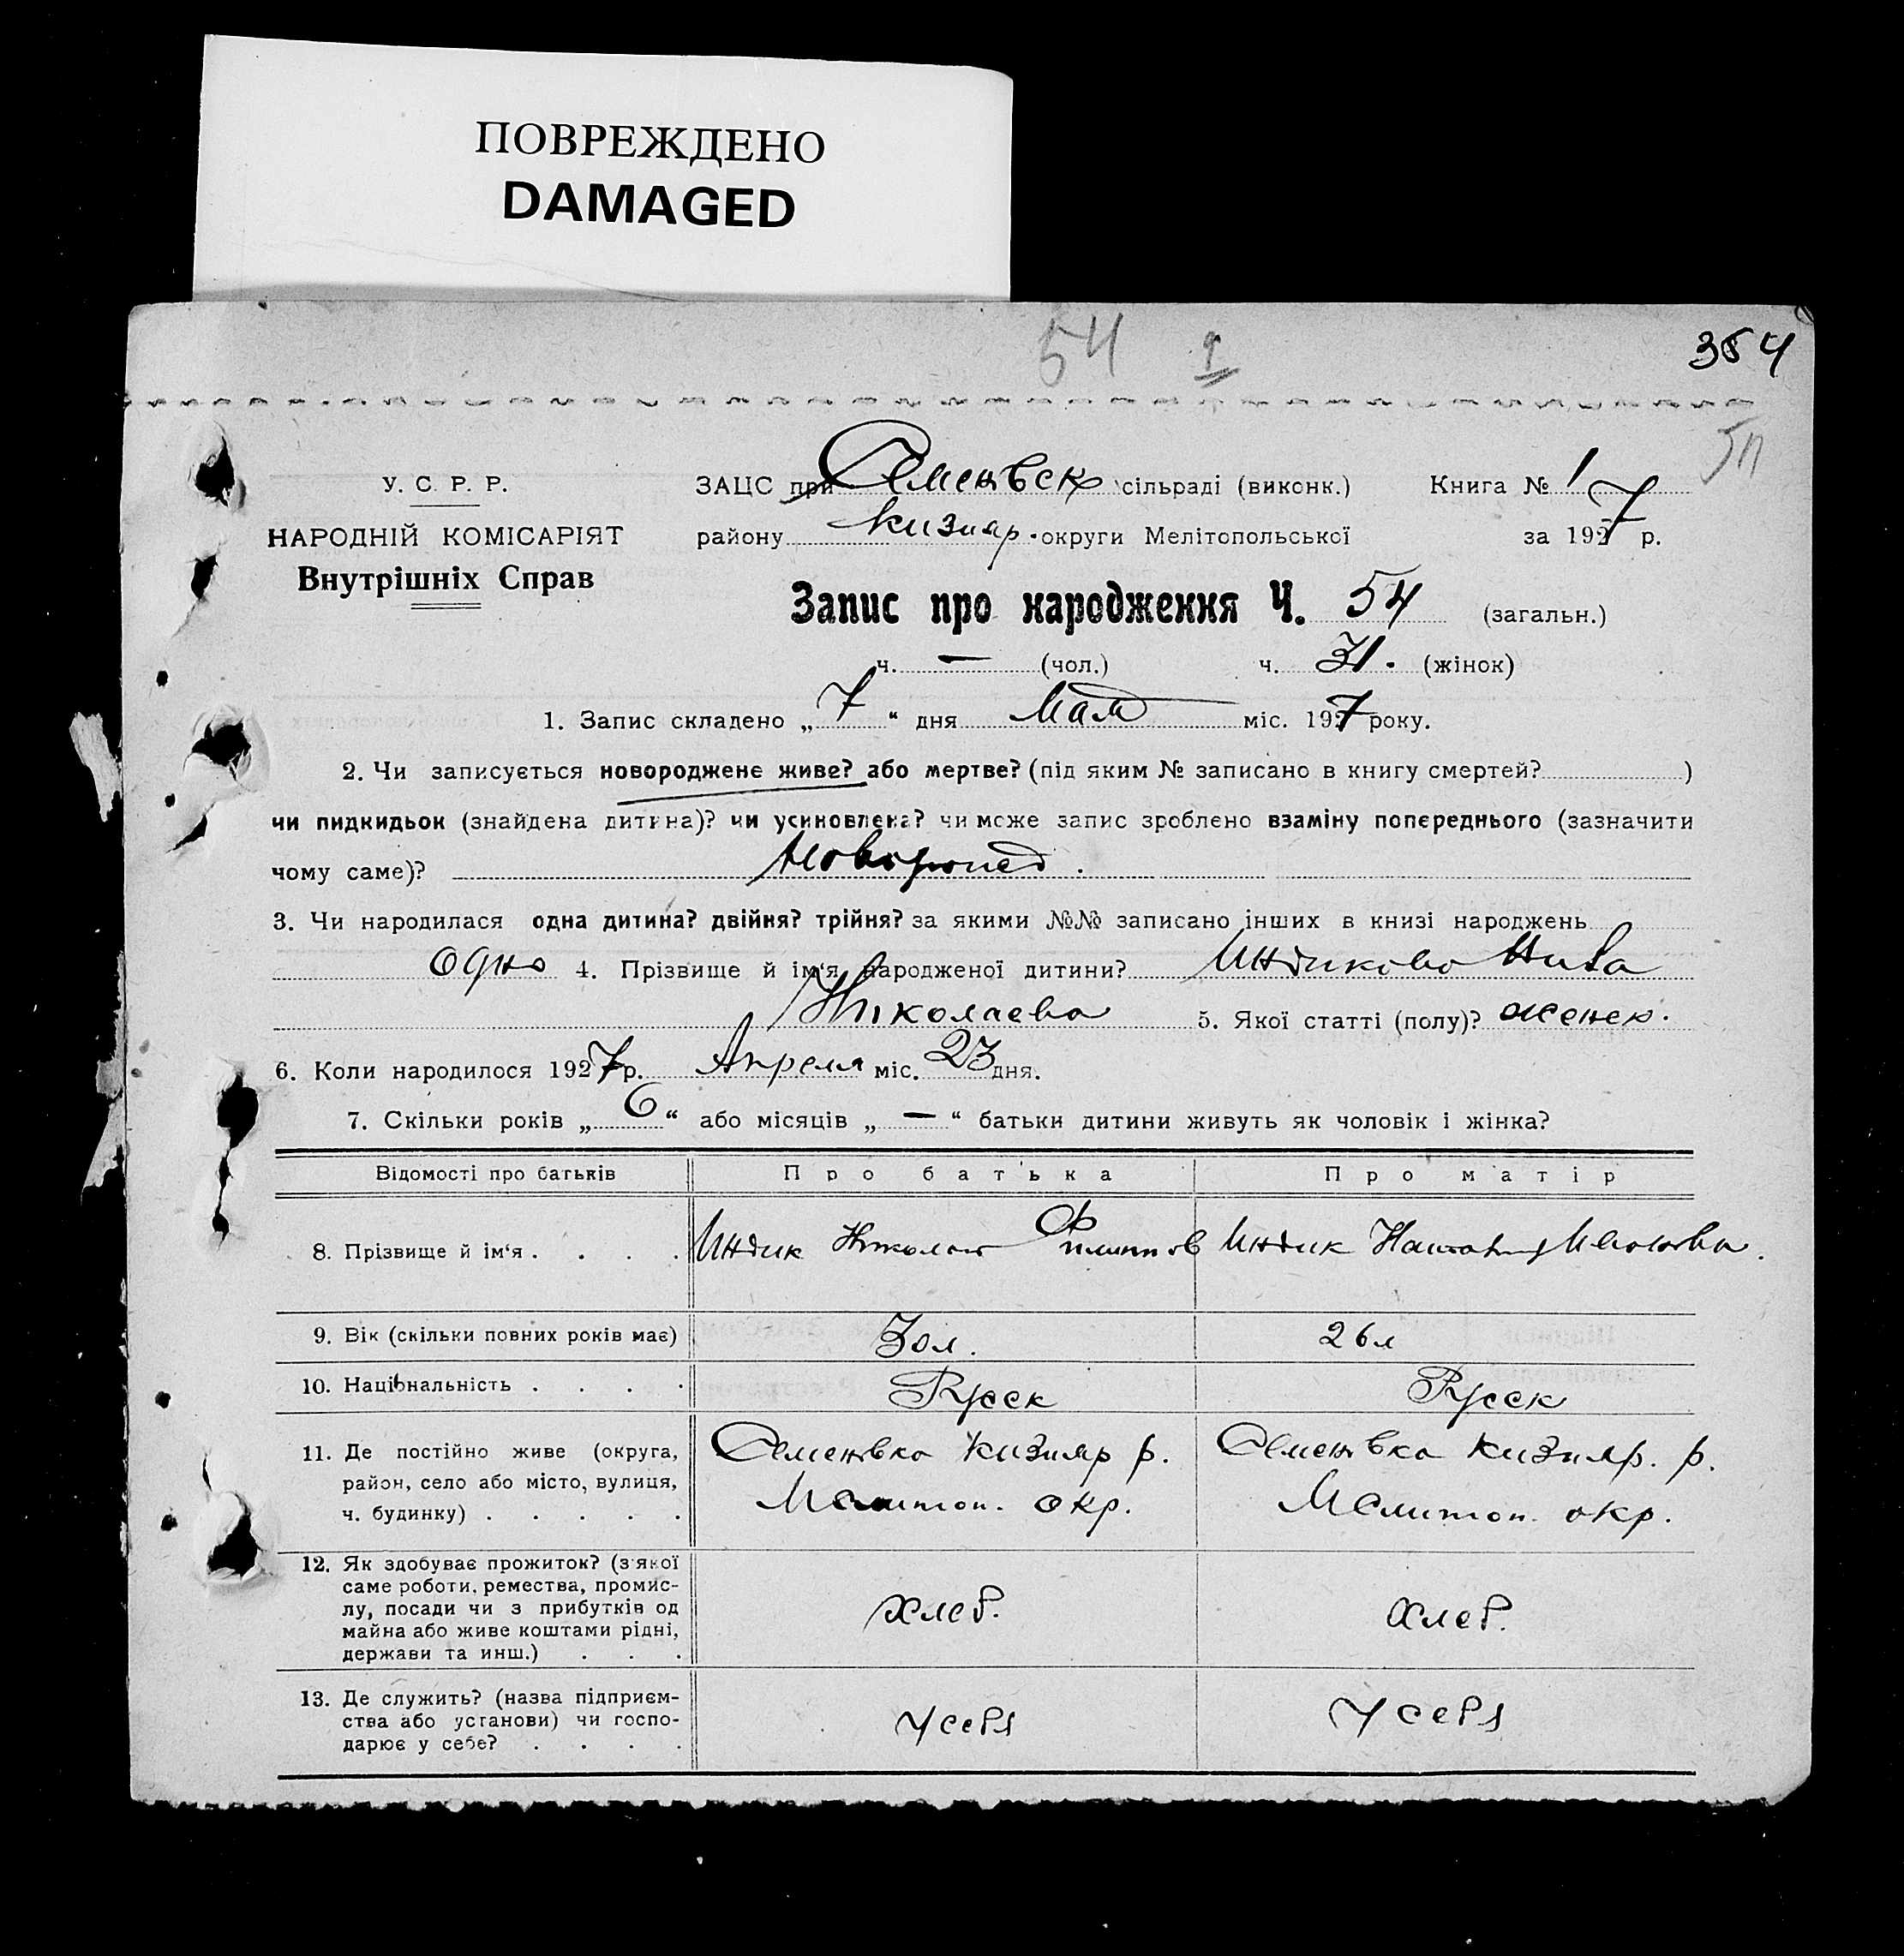 ПОВРЕЖДЕНО
DAMAGED
54 354
У. С. Р. Р.
НАРОДНІЙ КОМІСАРІЯТ
Внутрішніх Справ
ЗАЦС при Семеновск сільраді (виконк.) Книга № 1
району Кизияр. округи Мелітопольської за 1927 р.
Запис про народження Ч. 54 (загальн.)
ч. — (чол.) ч. 31. (жінок)
1. Запис складено „ 7 “ дня Мая міс. 1927 року.
2. Чи записується новороджене живе? або мертве? (під яким № записано в книгу смертей? )
чи пидкидьок (знайдена дитина)? чи усиновлена? чи може запис зроблено взаміну попереднього (зазначити
чому саме)? Новорожед.
3. Чи народилася одна дитина? двійня? трійня? за якими №№ записано інших в книзі народжень
одно 4. Прізвище й ім‘я народженої дитини? Индиково
Николаева 5. Якої статті (полу)? женск.
6. Коли народилося 1927 р. Апреля міс. 23 дня.
7. Скільки років „ 6 “ або місяців „ — “ батьки дитини живуть як чоловік і жінка?
Відомості про батьків Про батька Про матір
8. Прізвище й ім‘я . . . . Индик Николай Филиппов Индик
9. Вік (скільки повних років має) 30 л. 26 л
10. Національність . . . . Русск Русск
11. Де постійно живе (округа,
район, село або місто, вулиця,
ч. будинку) . . . . .
Семеновка Кизияр р.
Мелитоп. окр.
Семеновка Кизияр. р.
Мелитоп. окр.
12. Як здобуває прожиток? (з якої
саме роботи, ремества, промис-
лу, посади чи з прибутків од
майна або живе коштами рідні,
держави та инш.) . . .
хлеб. хлеб.
13. Де служить? (назва підприєм-
ства або установи) чи госпо-
дарює у себе? . . . .
у себя у себя